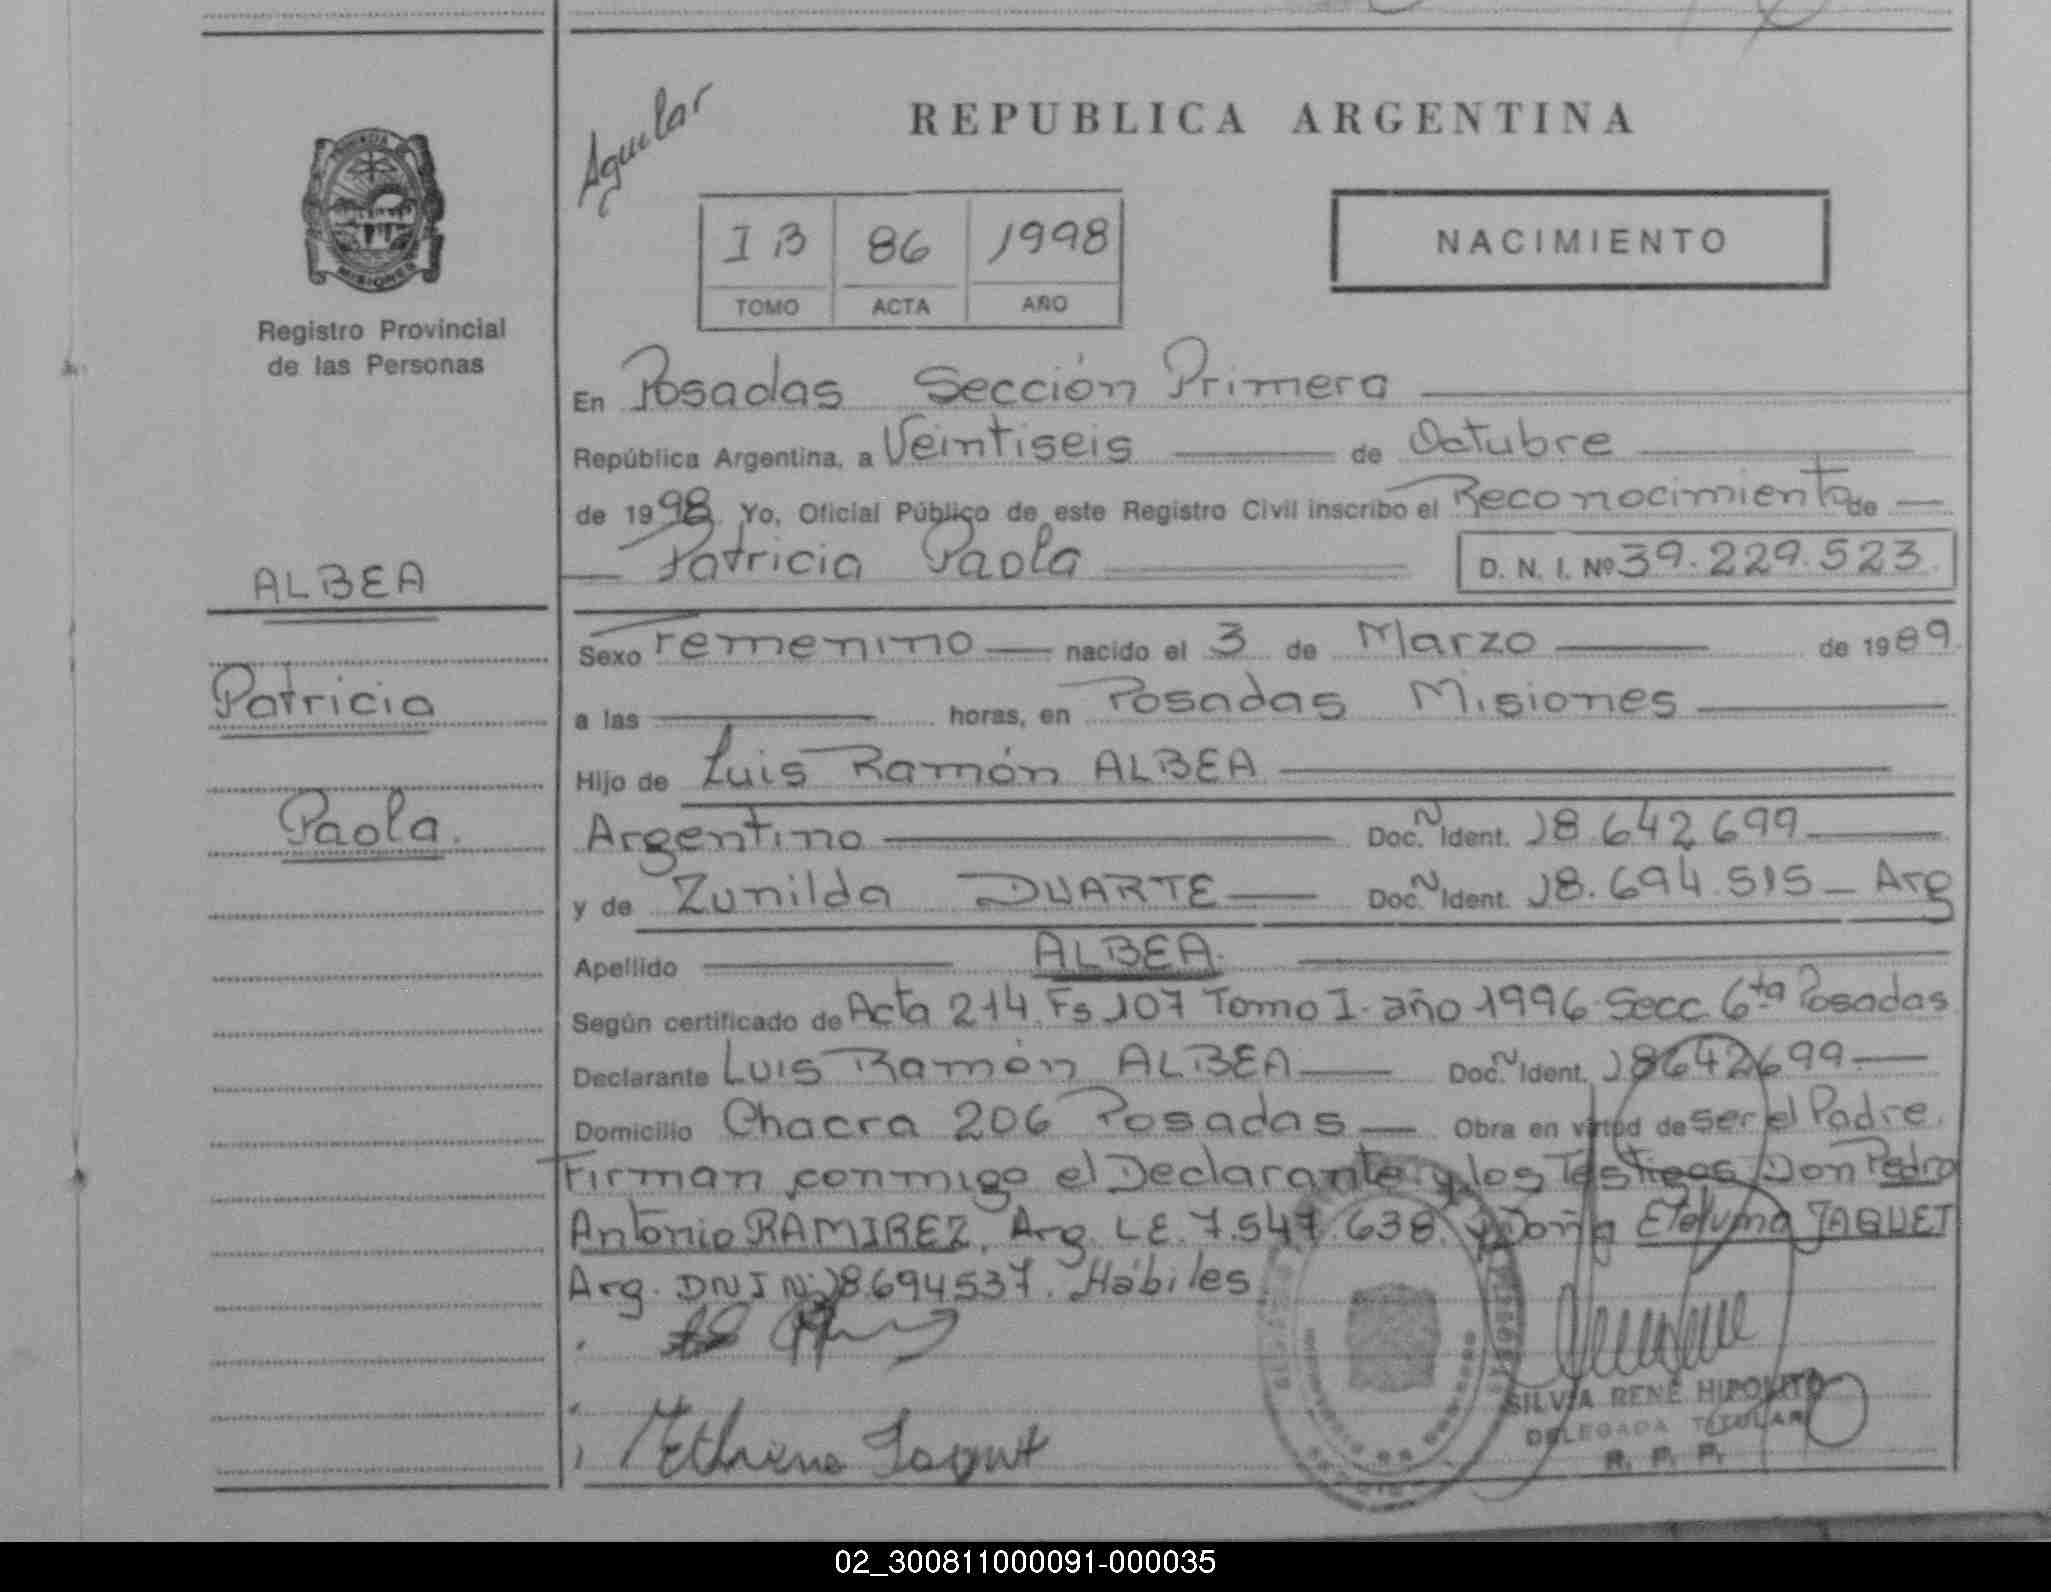 REPUBLICA ARGENTINA
Aguilar
I B 86 1998
TOMO ACTA AÑO
NACIMIENTO
MISIONES
Registro Provincial
de las Personas
ALBEA
Patricia
Paola.
En Posadas Sección Primera
República Argentina, a Veintiseis de Octubre
de 1998. Yo, Oficial Público de este Registro Civil inscribo el Reconocimiento de
Patricia Paola D. N. I. Nº 39.229.523.
Sexo Femenino nacido el 3 de Marzo de 1989.
a las horas, en Posadas Misiones
Hijo de Luis Ramón ALBEA
Argentino Doc. Ident. 18.642.699
y de Zunilda DUARTE Doc. Ident. 18.694.515 Arg
Apellido ALBEA.
Según certificado de Acta 214 Fs 107 Tomo I. año 1996 Secc. 6ta Posadas
Declarante Luis Ramón ALBEA Doc. Ident. 18642699
Domicilio Chacra 206 Posadas Obra en virtud de ser el Padre.
Firman conmigo el Declarante y los Testigos Don Pedro
Antonio RAMIREZ, Arg. L.E. 7.547.638. y Doña JAQUET
Arg. DNI Nº 18694537. Hábiles
SILVIA RENE HIPOLITO
DELEGADA TITULAR
R. P. P.
02_300811000091-000035